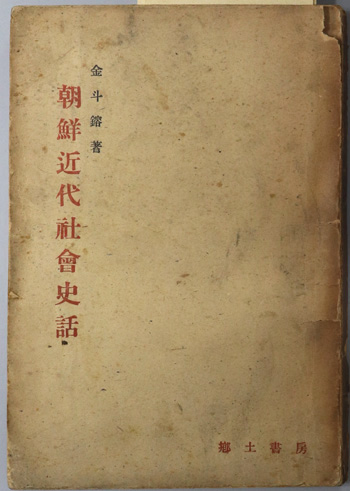 金斗鎔著
朝鮮近代社會史話
鄕土書房